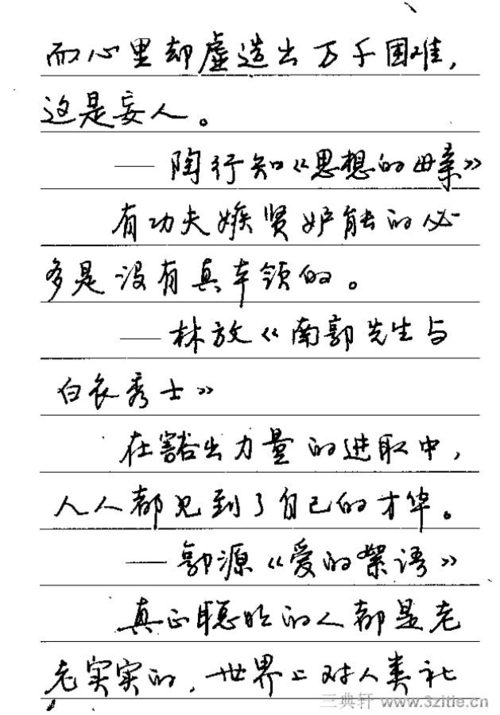 而心里却虚造出万千困难，
这是妄人。
——陶行知《思想的母亲》
有功夫嫉贤妒能的必
多是没有真本领的。
——林放《南郭先生与
白衣秀士》
在豁出力量的进取中，
人人都见到了自己的才华。
——郭源《爱的絮语》
真正聪明的人都是老
老实实的，世界上对人类社
三典轩 www.3zitie.cn